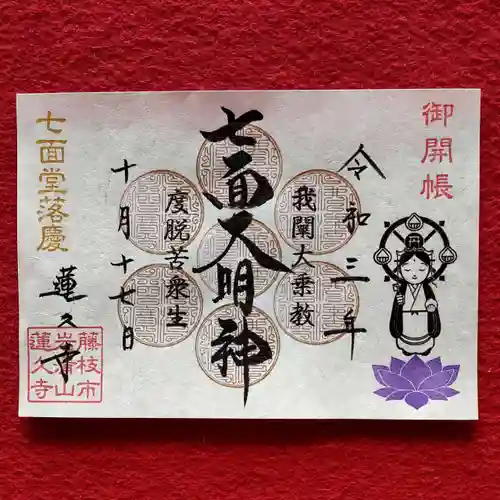 御開帳
令和三年
我闡大乗教
七面大明神
度脱苦衆生
十月十七日
七面堂落慶
蓮久寺
藤枝市
岩清山
蓮久寺